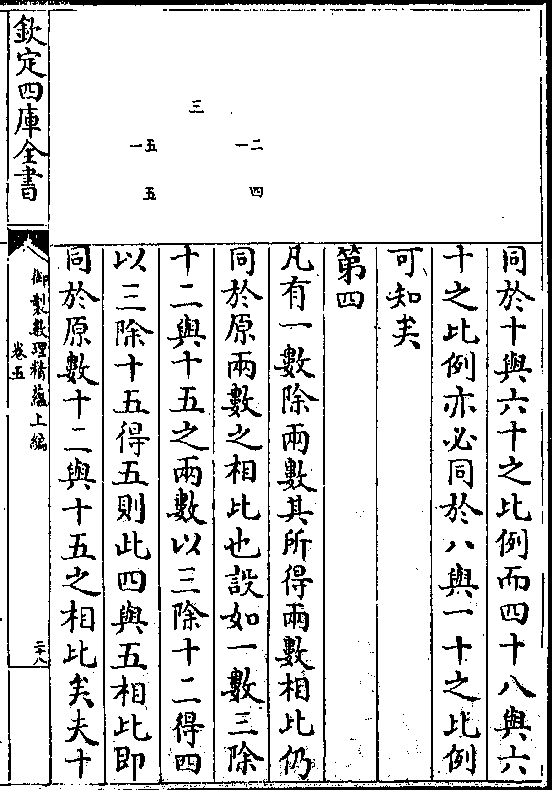 同於十與六十之比例而四十八與六
十之比例亦必同於八與一十之比例
可知矣
第四
凡有一數除兩數其所得兩數相比仍
同於原兩數之相比也設如一數三除
十二與十五之兩數以三除十二得四
以三除十五得五則此四與五相比即
同於原數十二與十五之相比矣夫十
三
一二
四
一五
五
欽定四庫全書
御製數理精蘊上編
卷五
二十八